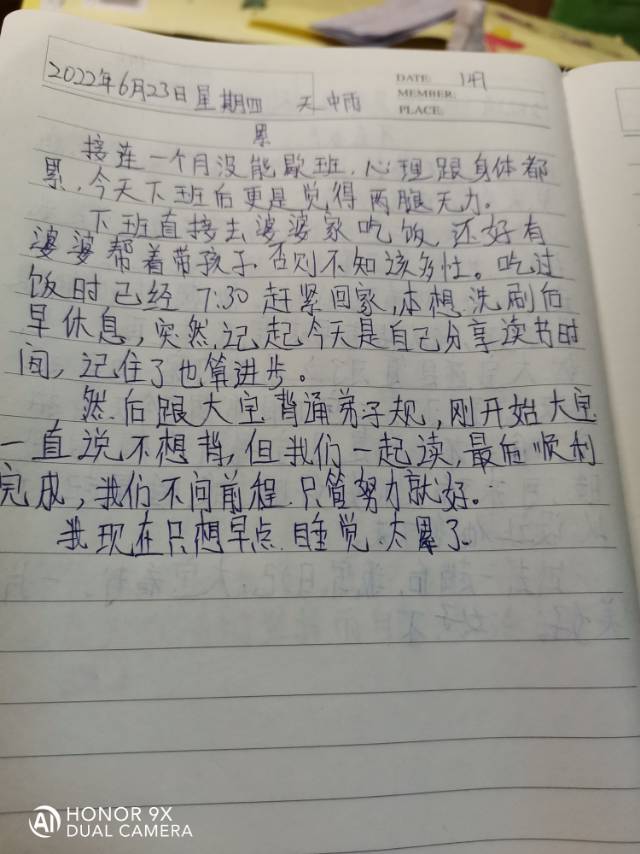 DATE: 1月
2022年6月23日 星期四 天 中雨
MEMBER:
PLACE:
累
接连一个月没能歇班,心理跟身体都
累,今天下班后更是觉得两腿无力。
下班直接去婆婆家吃饭,还好有
婆婆帮着带孩子,否则不知该多忙。吃过
饭时已经7:30赶紧回家,本想洗刷后
早休息,突然记起今天是自己分享读书时
间,记住了也算进步。
然后跟大宝背诵弟子规,刚开始大宝
一直说不想背,但我们一起读,最后顺利
完成,我们不问前程.只管努力就好。
我现在只想早点睡觉,太累了.
HONOR 9X
DUAL CAMERA